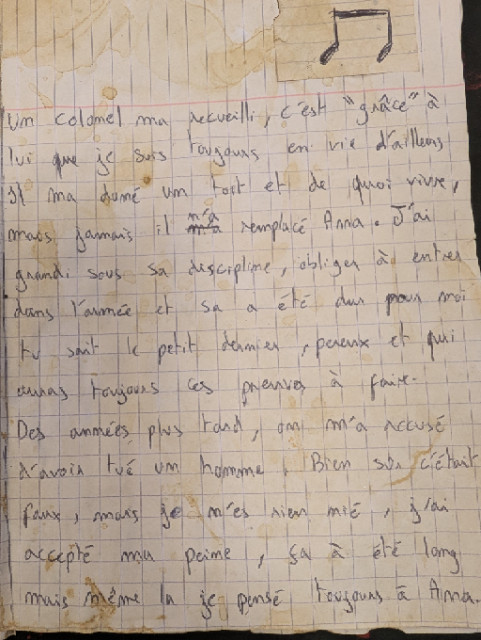 Un colonel ma recueilli, c'est "grâce" à
lui que je suis toujours en vie d'ailleurs
Il ma donné un toit et de quoi vivre,
mais jamais il m'a remplacé Anna. J'ai
grandi sous sa discipline, obliger à entrer
dans l'armée et sa a été dur pour moi
tu sait le petit dernier, pereux et qui
auras toujours ces preuves à faire.
Des années plus tard, on m'a accusé
d'avoir tué un homme. Bien sûr c'était
faux, mais je n'es rien nié, j'ai
accepté ma peine, ça à été long
mais même la je pensé toujours à Anna.